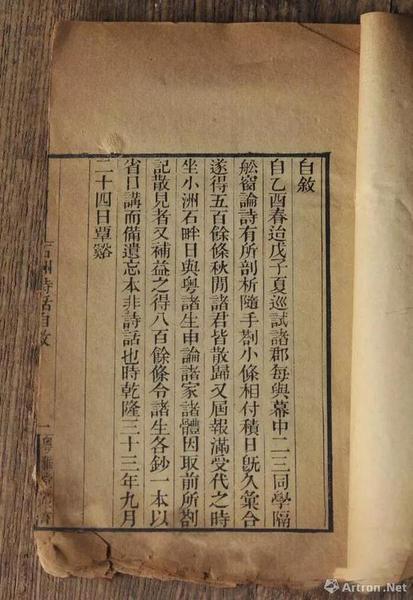 自敘
自乙酉春迨戊子夏巡試諸郡每與幕中二三同學隔
舩窗論詩有所剖析隨手劄小條相付積日旣久彙合
遂得五百餘條秋間諸君皆散歸又屆報滿受代之時
坐小洲石畔日與粵諸生申論諸家諸體因取前所劄
記散見者又補益之得八百餘條令諸生各鈔一本以
省口講而備遺忘本非詩話也時乾隆三十三年九月
二十四日覃谿
石洲詩話自敘
一 粵雅堂
Artron.Net